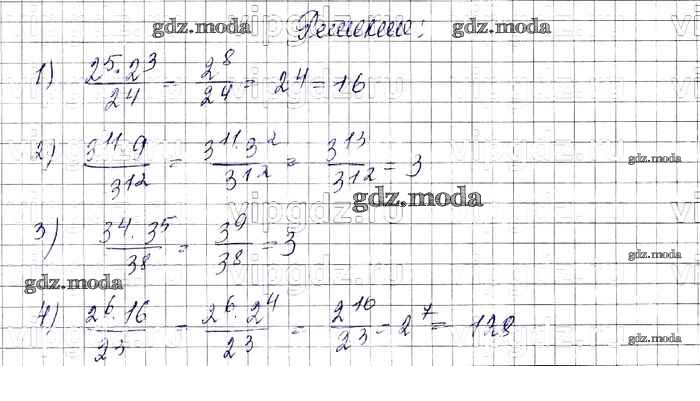 Решение:
gdz.moda gdz.moda
vipgdz.ru
1) 2^5·2^3/2^4 = 2^8/2^4 = 2^4 = 16
vipgdz.ru
2) 3^11·9/3^12 = 3^11·3^2/3^12 = 3^13/3^12 = 3
gdz.moda
vipgdz.ru
gdz.moda
vipgdz.ru
3) 3^4·3^5/3^8 = 3^9/3^8 = 3
gdz.moda
vipgdz.ru
gdz.moda
4) 2^6·16/2^3 = 2^6·2^4/2^3 = 2^10/2^3 = 2^7 = 128
vipgdz.ru
gdz.moda